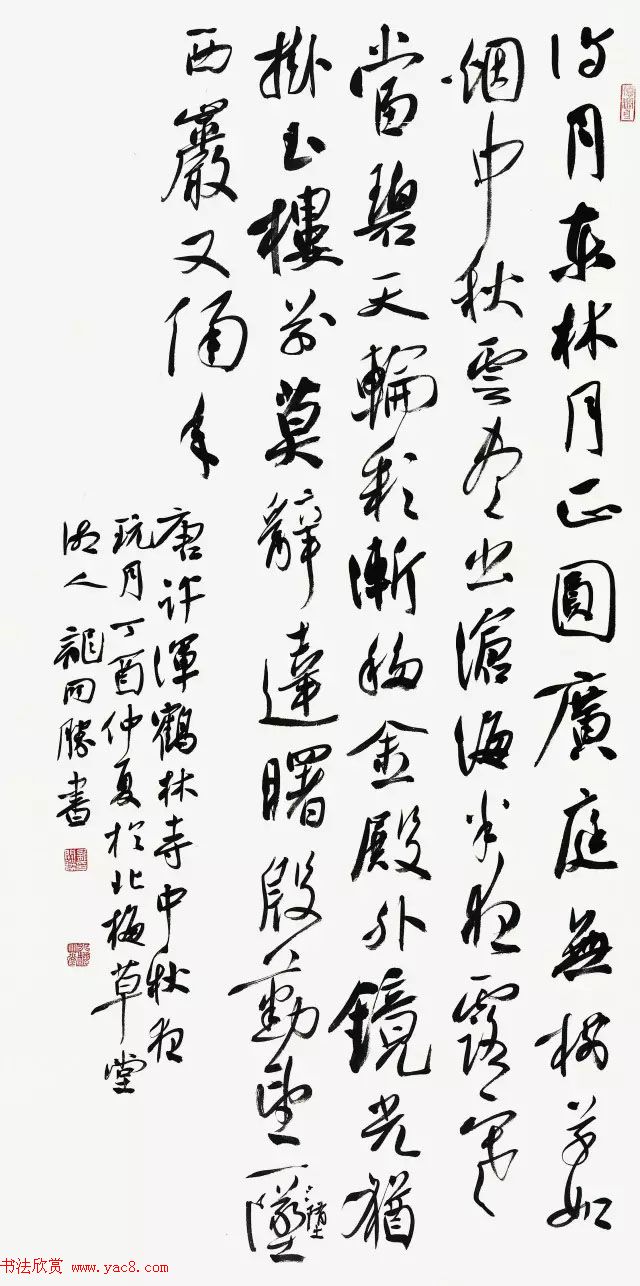 待月東林月正圓廣庭無樹草如
烟中秋雲盡出滄海半夜露寒
當碧天輪彩漸移金殿外鏡光猶
掛玉樓前莫辭達曙殷勤望一墜
墮
西巖又隔年
唐許渾鶴林寺中秋夜
玩月丁酉仲夏於北梅草堂
湘人龍開勝書
书法欣赏 www.yac8.com